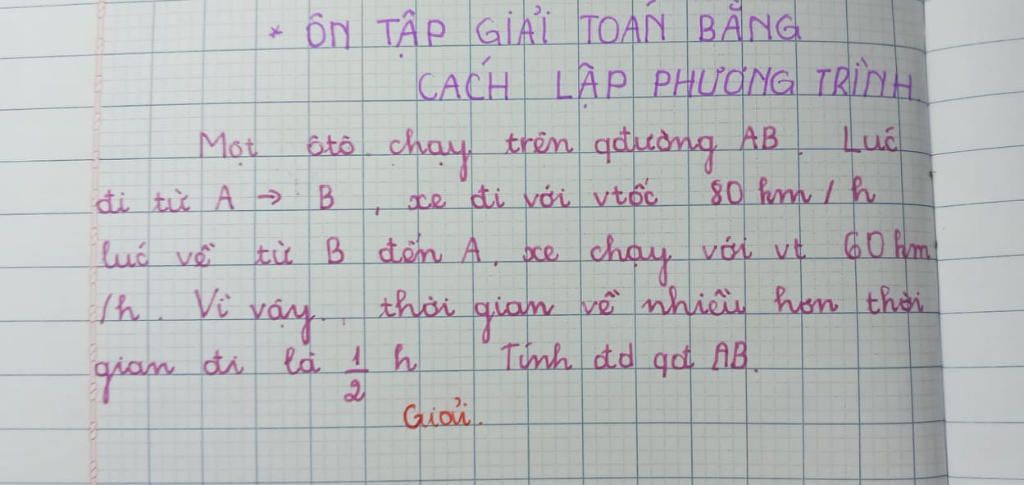 * ÔN TẬP GIẢI TOÁN BẰNG
CÁCH LẬP PHƯƠNG TRÌNH
Một ôtô chạy trên qđường AB. Lúc
đi từ A → B, xe đi với vtốc 80 km/h
lúc về từ B đến A, xe chạy với vt 60 km
/h. Vì vậy, thời gian về nhiều hơn thời
gian đi là 1/2 h Tính đd qđ AB.
Giải.